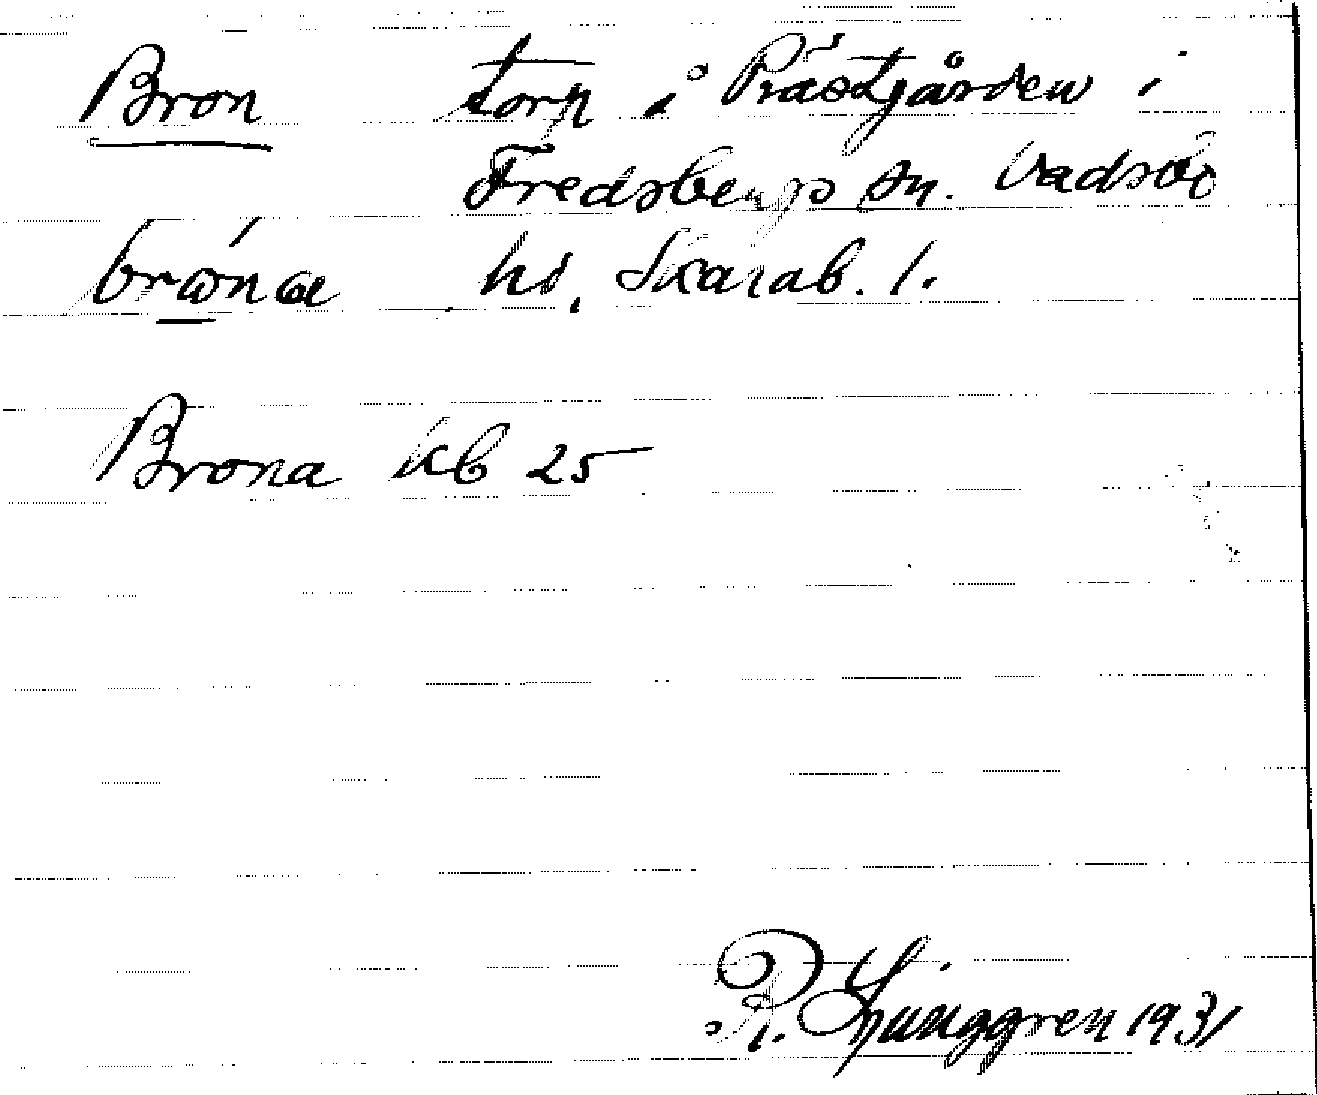 Bron torp å Prästgården i
Fredsbergs sn. Vadsbo
hd, Skarab. l.
Brona kb 25
R. Ljunggren 1931